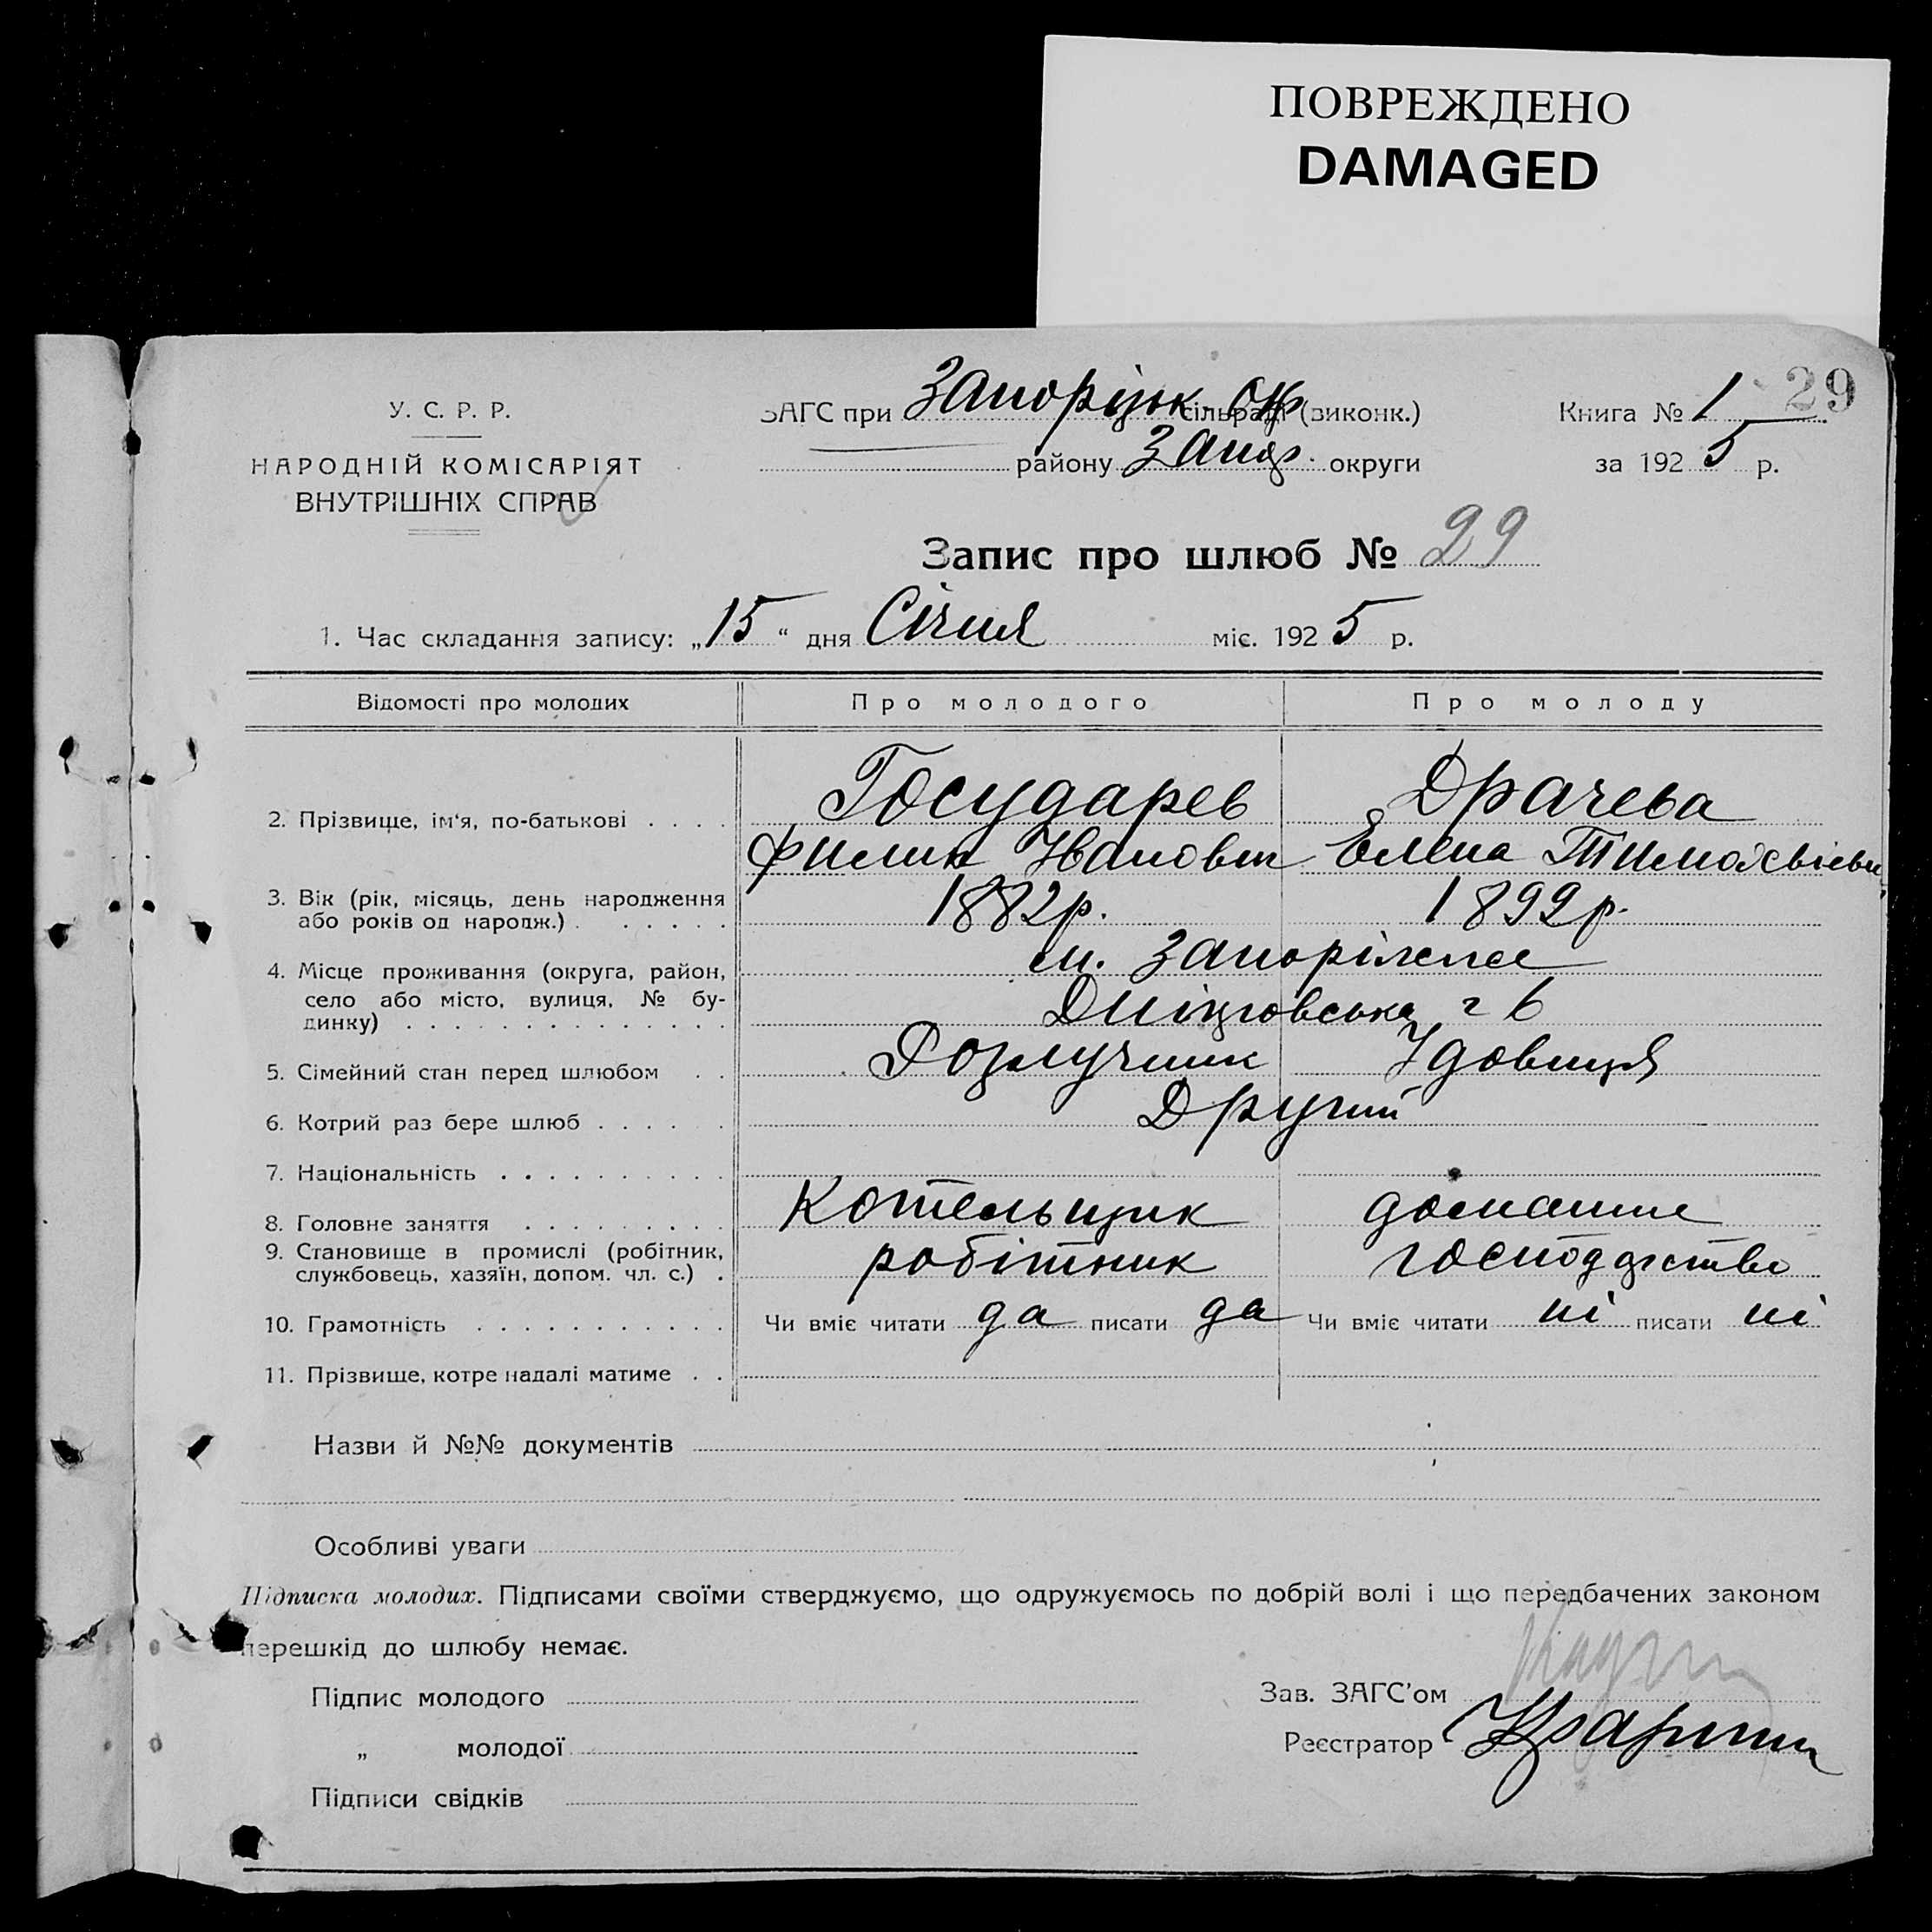 ПОВРЕЖДЕНО
DAMAGED
29
У. С. Р. Р.
НАРОДНІЙ КОМІСАРІЯТ
ВНУТРІШНІХ СПРАВ
ЗАГС при Запорізьк. Окр сільраді (виконк.)
району Запор. округи
Книга № 1
за 1925 р.
Запис про шлюб № 29
1. Час складання запису: „15“ дня Січня міс. 1925 р.
Відомості про молодих Про молодого Про молоду
2. Прізвище, ім'я, по-батькові . . . . Государев Драчева
Филип Іванович Елена Тимофеѣвна
3. Вік (рік, місяць, день народження
або років од народж.) . . . . . . 1882р. 1899р.
4. Місце проживання (округа, район,
село або місто, вулиця, № бу-
динку) . . . . . . . . . . . . . .
м. Запоріжже
5. Сімейний стан перед шлюбом . . Удовиця
6. Котрий раз бере шлюб . . . . . . Другий
7. Національність . . . . . . . . . .
8. Головне заняття . . . . . . . . . Котельщик домашнє
9. Становище в промислі (робітник,
службовець, хазяїн, допом. чл. с.) . робітник господарство
10. Грамотність . . . . . . . . . . . Чи вміє читати да писати да Чи вміє читати ні писати ні
11. Прізвище, котре надалі матиме . .
Назви й №№ документів
Особливі уваги
Підписка молодих. Підписами своїми стверджуємо, що одружуємось по добрій волі і що передбачених законом
перешкід до шлюбу немає.
Підпис молодого
Зав. ЗАГС'ом
„ молодої
Реєстратор
Підписи свідків